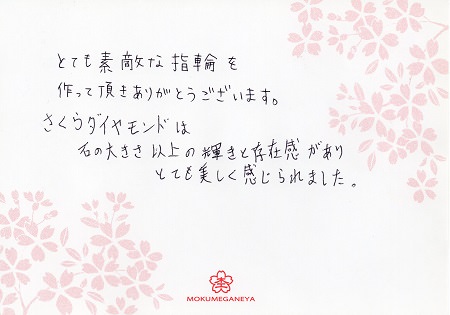 とても素敵な指輪を
作って頂きありがとうございます。
さくらダイヤモンドは
石の大きさ以上の輝きと存在感があり
とても美しく感じられました。
MOKUMEGANEYA